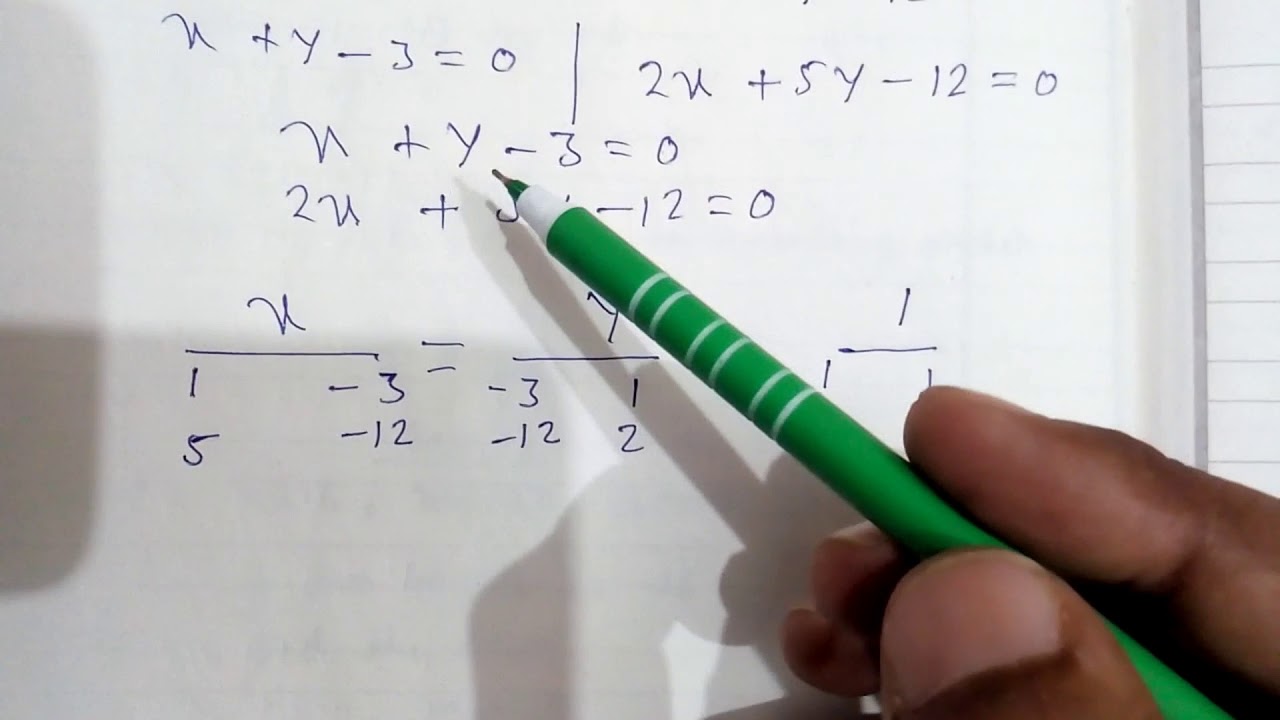 x + y - 3 = 0 | 2x + 5y - 12 = 0
x + y - 3 = 0
2x + 5 - 12 = 0
x = y 1
1 -3 -3 1 1 1
5 -12 -12 2